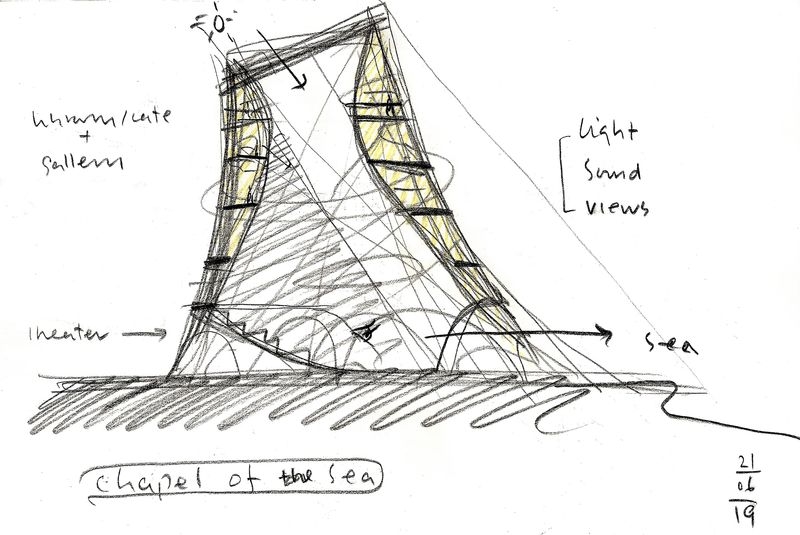 library/cafe
+
gallery
light
sound
views
Theater
sea
chapel of the sea
21
06
19